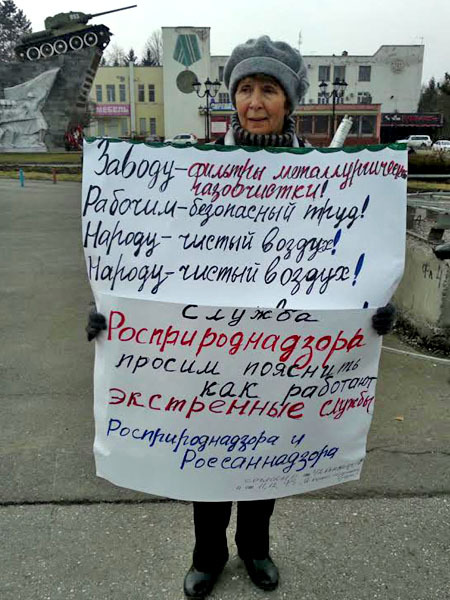 МЕБЕЛЬ
Заводу - фильтры металлургической
газоочистки!
Рабочим - безопасный труд!
Народу - чистый воздух!
Народу - чистый воздух!
Служба
Росприроднадзора
просим пояснить
как работают
экстренные службы
Росприроднадзора и
Россаннадзора